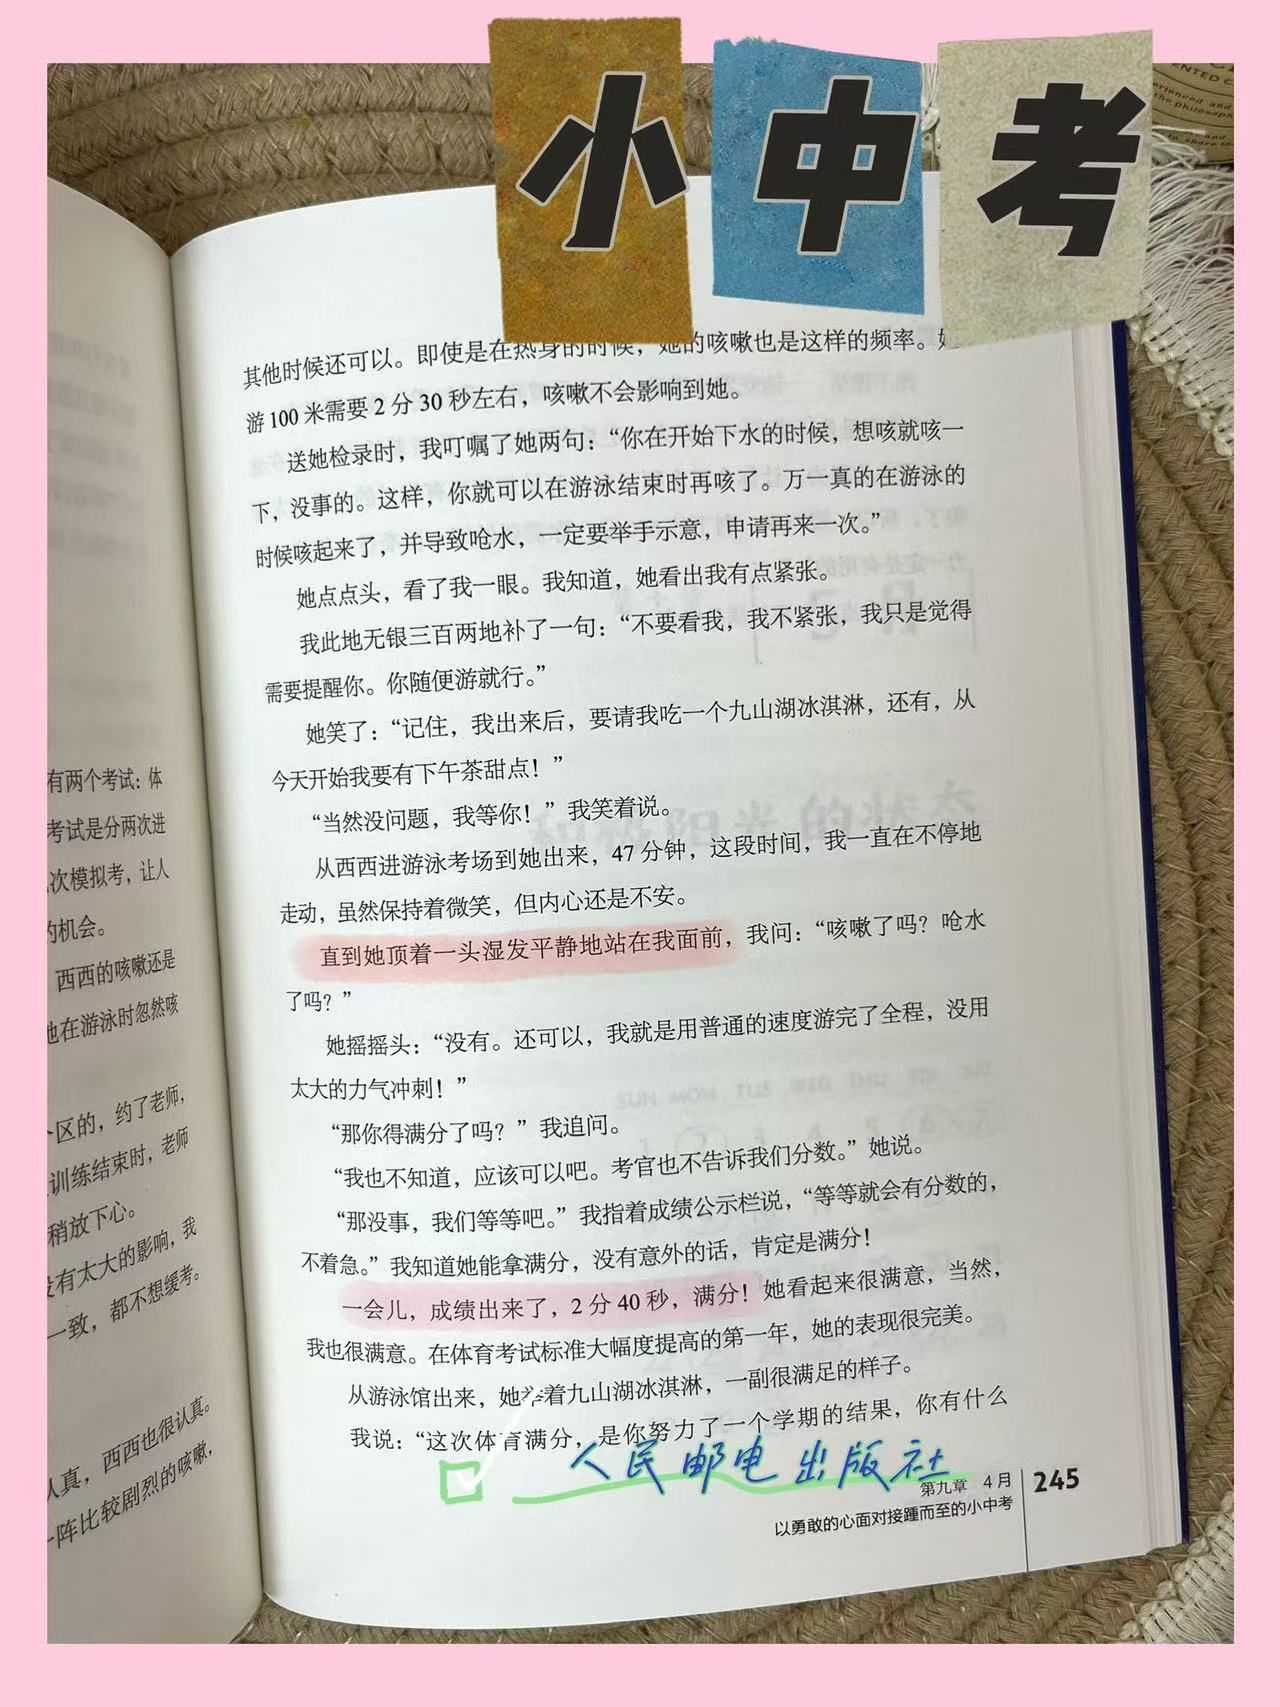 小中考
ENTED C
erienced and
the philosop
and
to share the
其他时候还可以。即使是在热身的时候，她的咳嗽也是这样的频率。她
游100米需要2分30秒左右，咳嗽不会影响到她。
送她检录时，我叮嘱了她两句：“你在开始下水的时候，想咳就咳一
下，没事的。这样，你就可以在游泳结束时再咳了。万一真的在游泳的
时候咳起来了，并导致呛水，一定要举手示意，申请再来一次。”
她点点头，看了我一眼。我知道，她看出我有点紧张。
我此地无银三百两地补了一句：“不要看我，我不紧张，我只是觉得
需要提醒你。你随便游就行。”
她笑了：“记住，我出来后，要请我吃一个九山湖冰淇淋，还有，从
今天开始我要有下午茶甜点！”
“当然没问题，我等你！”我笑着说。
从西西进游泳考场到她出来，47分钟，这段时间，我一直在不停地
走动，虽然保持着微笑，但内心还是不安。
直到她顶着一头湿发平静地站在我面前，我问：“咳嗽了吗？呛水
了吗？”
她摇摇头：“没有。还可以，我就是用普通的速度游完了全程，没用
太大的力气冲刺！”
“那你得满分了吗？”我追问。
“我也不知道，应该可以吧。考官也不告诉我们分数。”她说。
“那没事，我们等等吧。”我指着成绩公示栏说，“等等就会有分数的，
不着急。”我知道她能拿满分，没有意外的话，肯定是满分！
一会儿，成绩出来了，2分40秒，满分！她看起来很满意，当然，
我也很满意。在体育考试标准大幅度提高的第一年，她的表现很完美。
从游泳馆出来，她拿着九山湖冰淇淋，一副很满足的样子。
我说：“这次体育满分，是你努力了一个学期的结果，你有什么
人民邮电出版社
第九章 4月
以勇敢的心面对接踵而至的小中考
245
有两个考试：体
考试是分两次进
次模拟考，让人
的机会。
西西的咳嗽还是
她在游泳时忽然咳
个区的，约了老师，
训练结束时，老师
稍放下心。
没有太大的影响，我
一致，都不想缓考。
西西也很认真。
认真，
一阵比较剧烈的咳嗽，